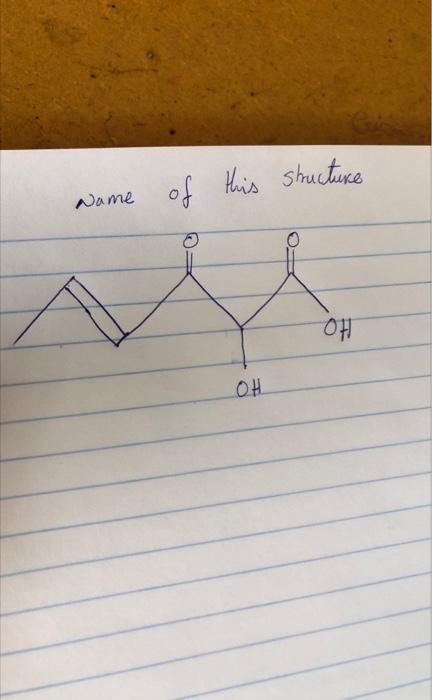 Name of this structure
O O
OH
OH